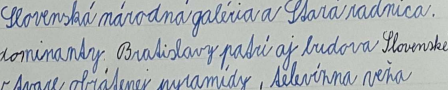 Slovenská národná galéria a Stará radnica.
dominanty. Bratislavy patrí aj budova Slovenské
tvare obrátenej pyramídy, televízna veža